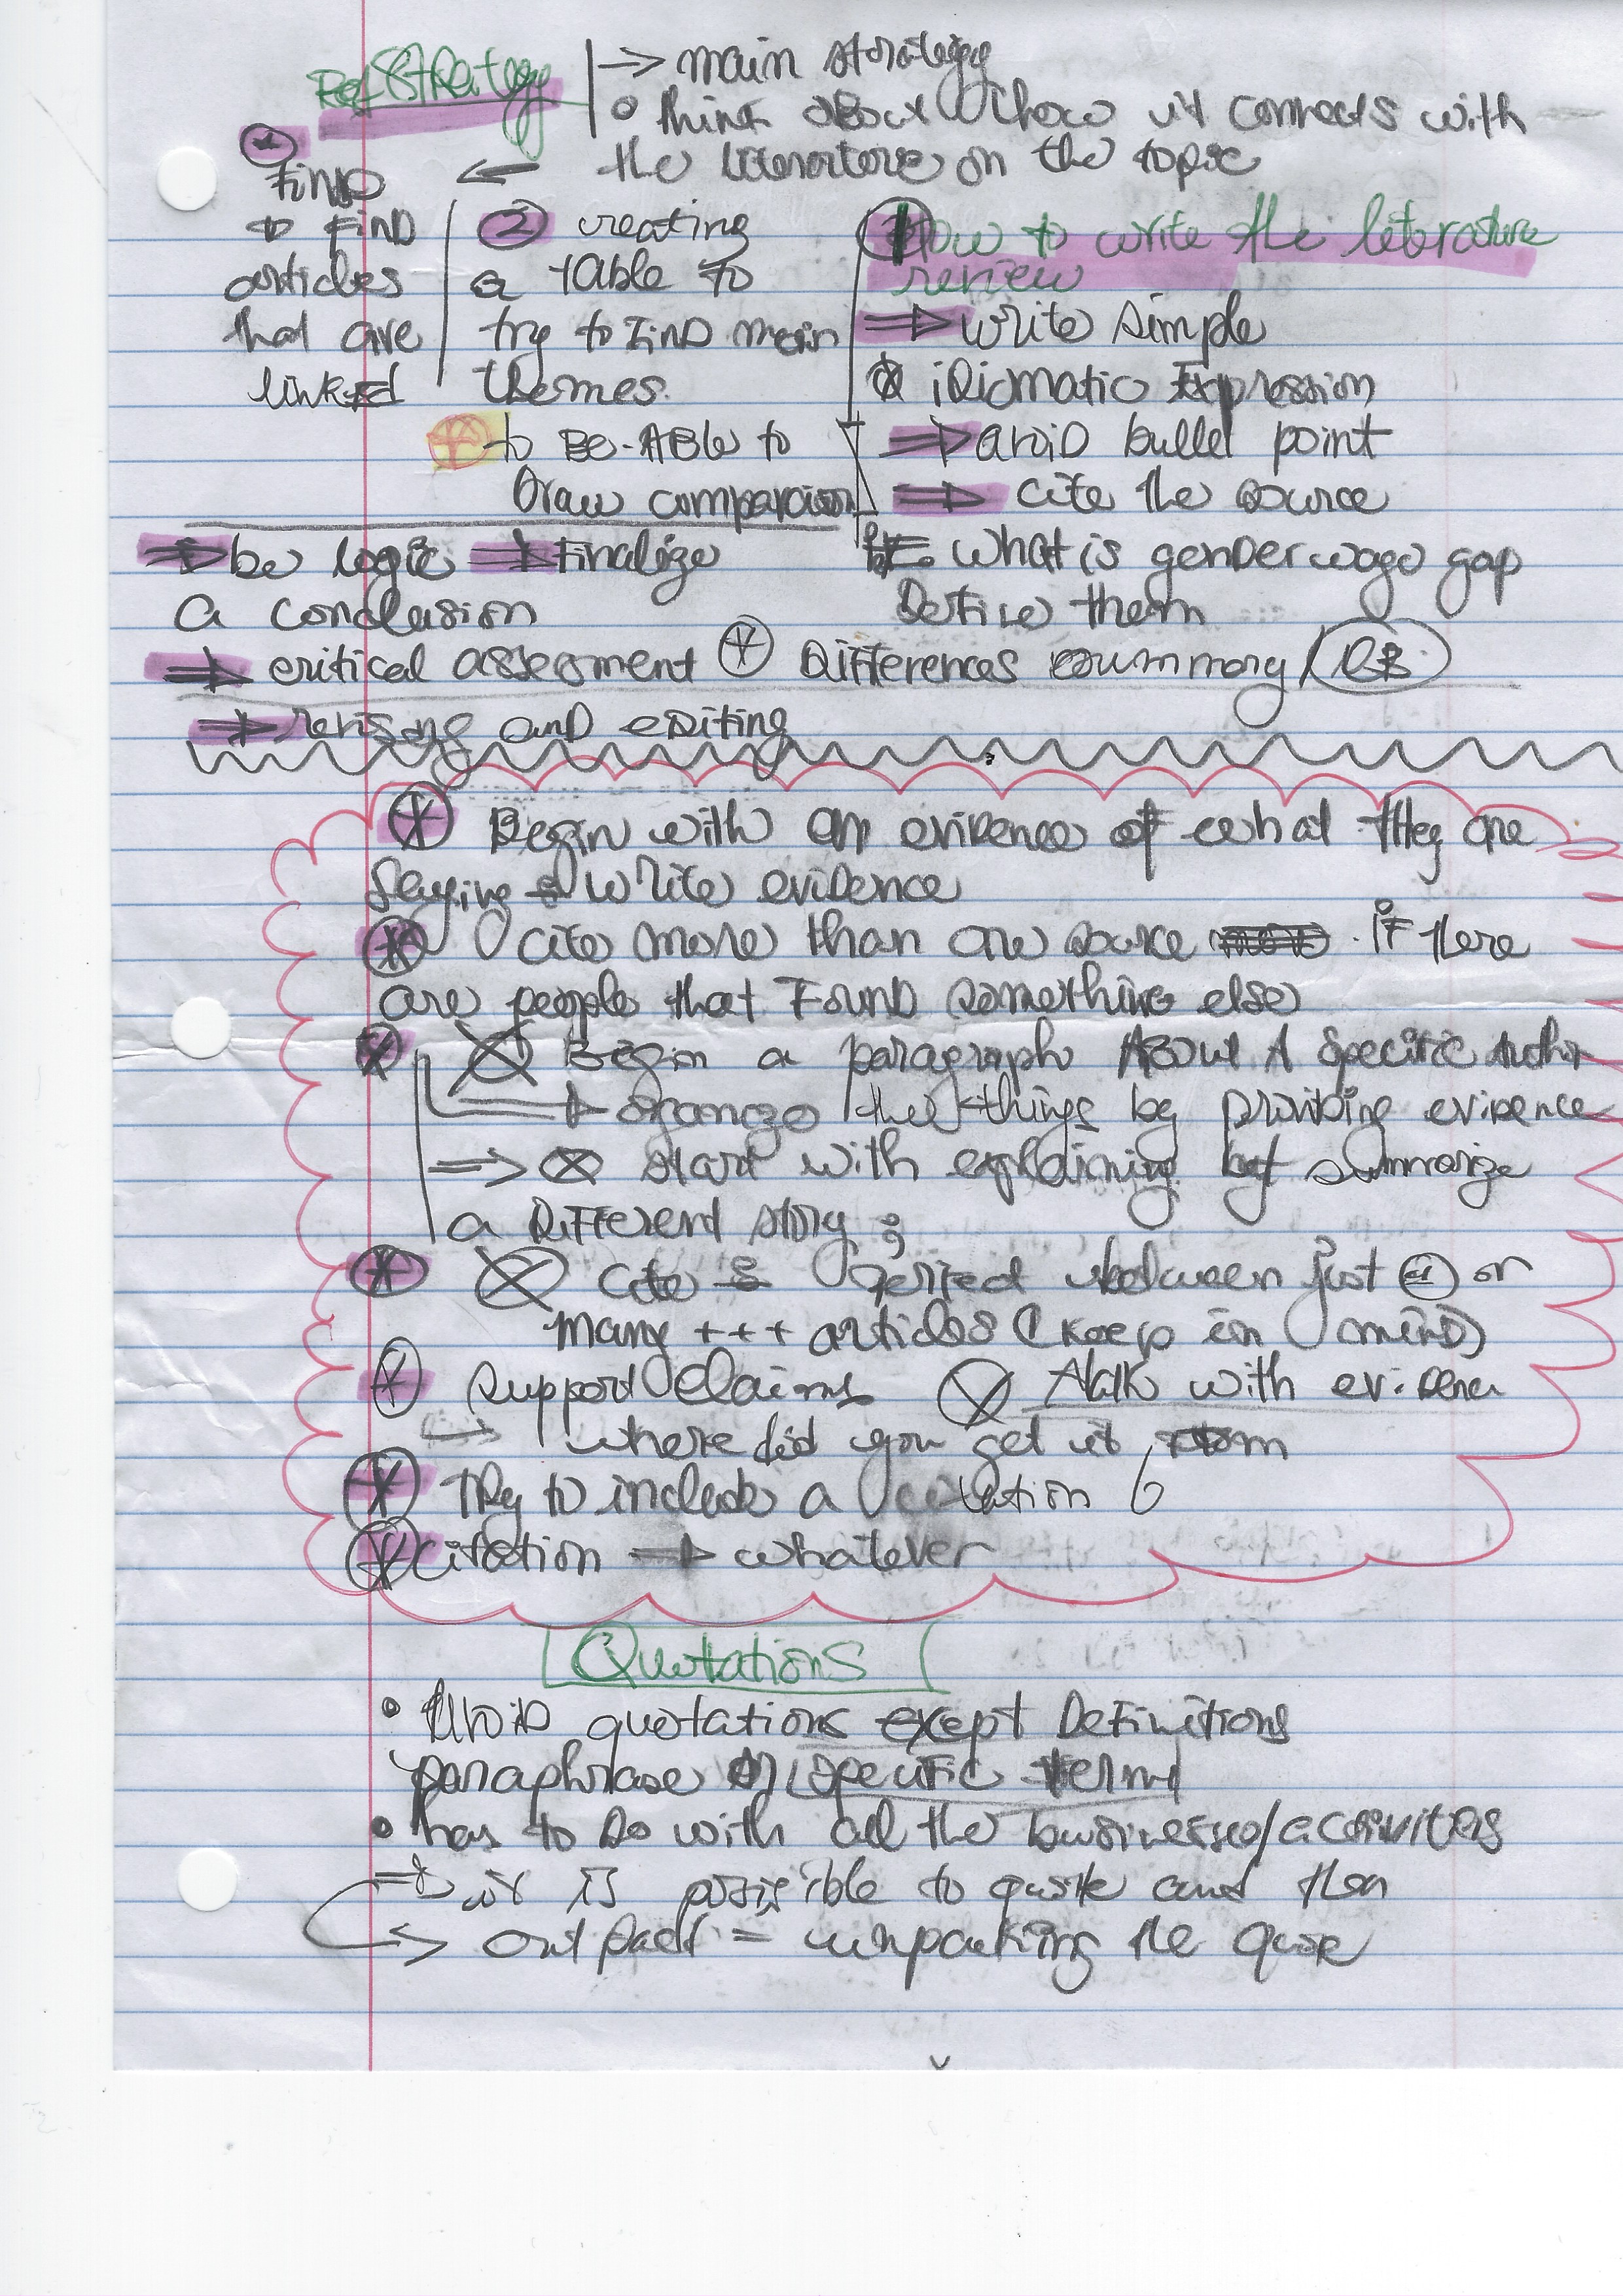 Ref Strategy
→ main strategy
• think about how it connects with
the literature on the topic
①
Find
⇒ Find
articles
that are
linked
② creating
a table to
try to find main
themes.
to be able to
draw comparaison
How to write the literature
review
⇒ write simple
idiomatic expression
⇒ avoid bullet point
⇒ cite the source
what is gender wage gap
Define them
⇒ be logic ⇒ finalize
a conclusion
⇒ critical assesment * Differences summary /
⇒ revising and editing
* Begin with an evidence of what they are
saying write evidence
* cite more than one source . if there
are people that found something else
* Begin a paragraph About A specific Author
→ organize the things by providing evidence
⇒ start with explaining by summarize
a different story ;
* cite between just ① or
many +++ articles (keep in mind)
* support claims talk with evidence
↳ where did you get it from
* Try to include a citation
* citation ⇒ whatever
Quotations
• Avoid quotations except Definitions
paraphrase specific term
• has to do with all the businesses/activities
→ it is possible to quote and then
→ = unpacking the quote